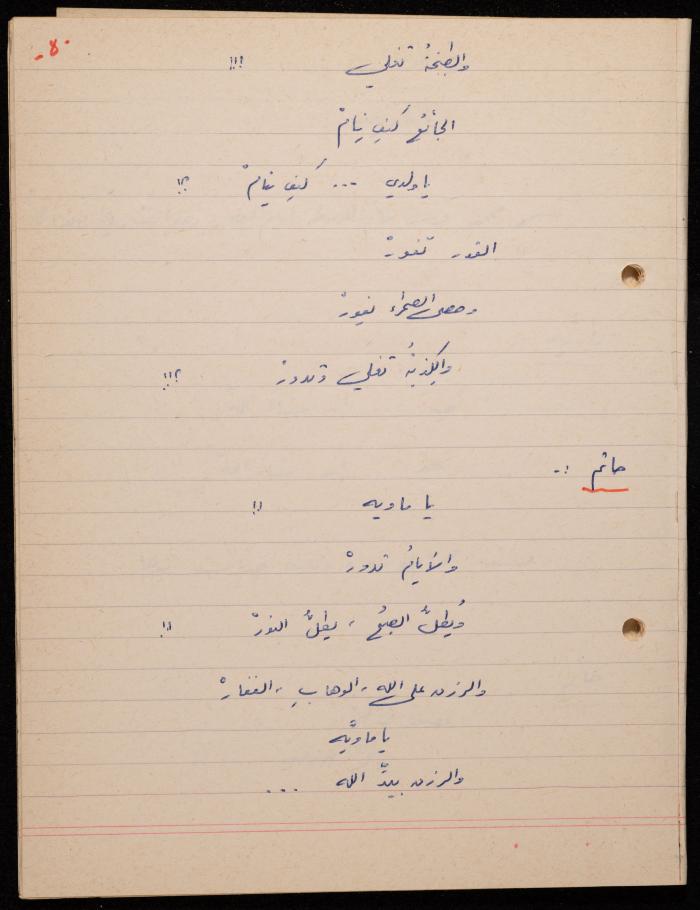 -٨-
والطبخةُ تغلي !!!
الجائعُ كيف ينامْ
يا ولدي ... كيف ينامْ ؟!
القدر تفورْ
وحصى الصحراء يفورْ
والكذبةُ تغلي وتدورْ ؟!!
حاتم :-
يا ماويه !!
والأيامُ تدورْ
ويطلُّ الصبحُ ، يطلُّ النورْ !!
والرزق على الله ، الوهابِ ، الغفارْ
يا ماويّه
والرزق بيدِّ الله ...